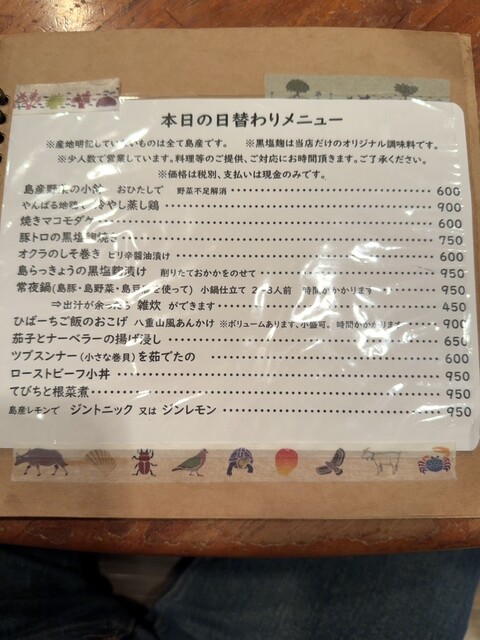 本日の日替わりメニュー
※産地明記していないものは全て島産です。 ※黒塩麹は当店だけのオリジナル調味料です。
※少人数で営業しています。料理等のご提供、ご対応にお時間頂きます。ご了承ください。
※価格は税別、支払いは現金のみです。
島産野菜の小丼 おひたしで 野菜不足解消 600
やんばる地鶏の冷やし蒸し鶏 900
焼きマコモダケ 600
豚トロの黒塩麹焼き 750
オクラのしそ巻き ピリ辛醤油漬け 600
島らっきょうの黒塩麹漬け 削りたておかかをのせて 950
常夜鍋(島豚・島野菜・島豆腐を使って) 小鍋仕立て 2~3人前 時間がかかります 950
⇒出汁が余ったら 雑炊 ができます 450
ひばーちご飯のおこげ 八重山風あんかけ ※ボリュームあります、小盛可。 時間かかります 900
茄子とナーベラーの揚げ浸し 650
ツブスンナー(小さな巻貝)を茹でたの 600
ローストビーフ小丼 950
てびちと根菜煮 950
島産レモンで ジントニック 又は ジンレモン 950